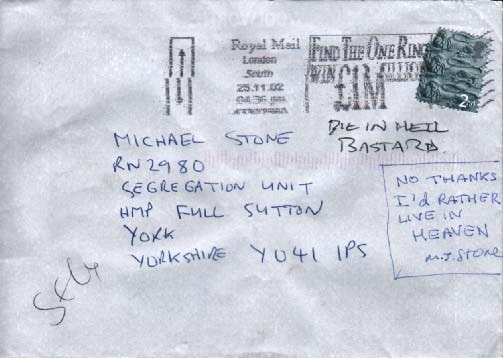 Royal Mail
London
South
25.11.02
FIND THE ONE RING
WIN £1M
2ND
DIE IN HELL
BASTARD
MICHAEL STONE
RN2980
SEGREGATION UNIT
HMP FULL SUTTON
YORK
YORKSHIRE YO41 1PS
NO THANKS
I'd RATHER
LIVE IN
HEAVEN
M.J.STONE